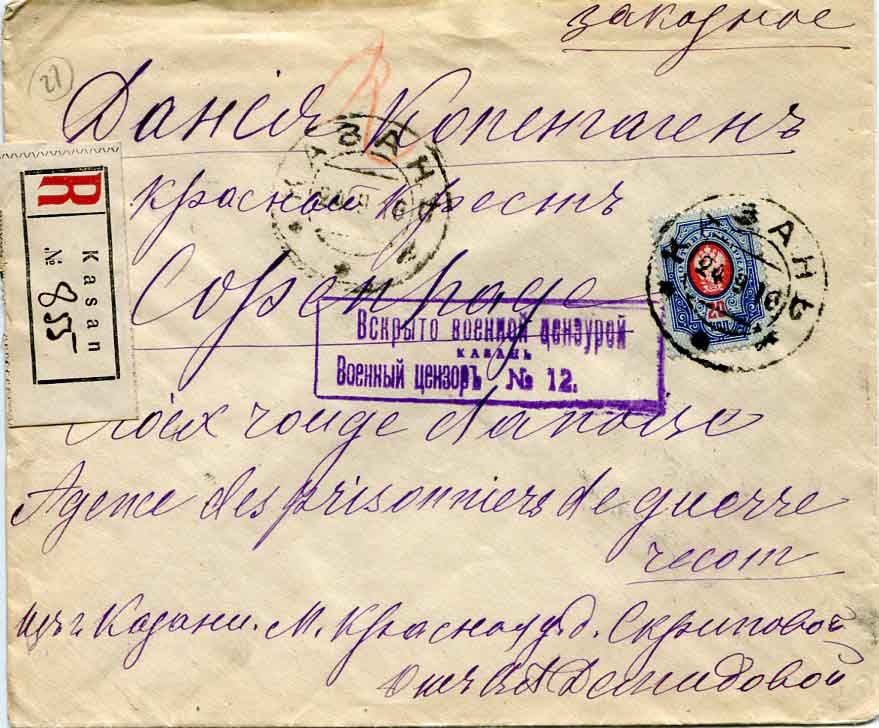 заказное
21
Данія Копенгагенъ
R
КАЗАНЬ
Красный Крестъ
R
Kasan
№ 855
КАЗАНЬ
24 9 16
Copenhague
Вскрыто военной цензурой
КАЗАНЬ
Военный цензоръ № 12.
Croix rouge danoise
Agence des prisonniers de guerre
изъ г. Казани. М. Красная ул. д. Скриповой
Отъ В А Демидовой